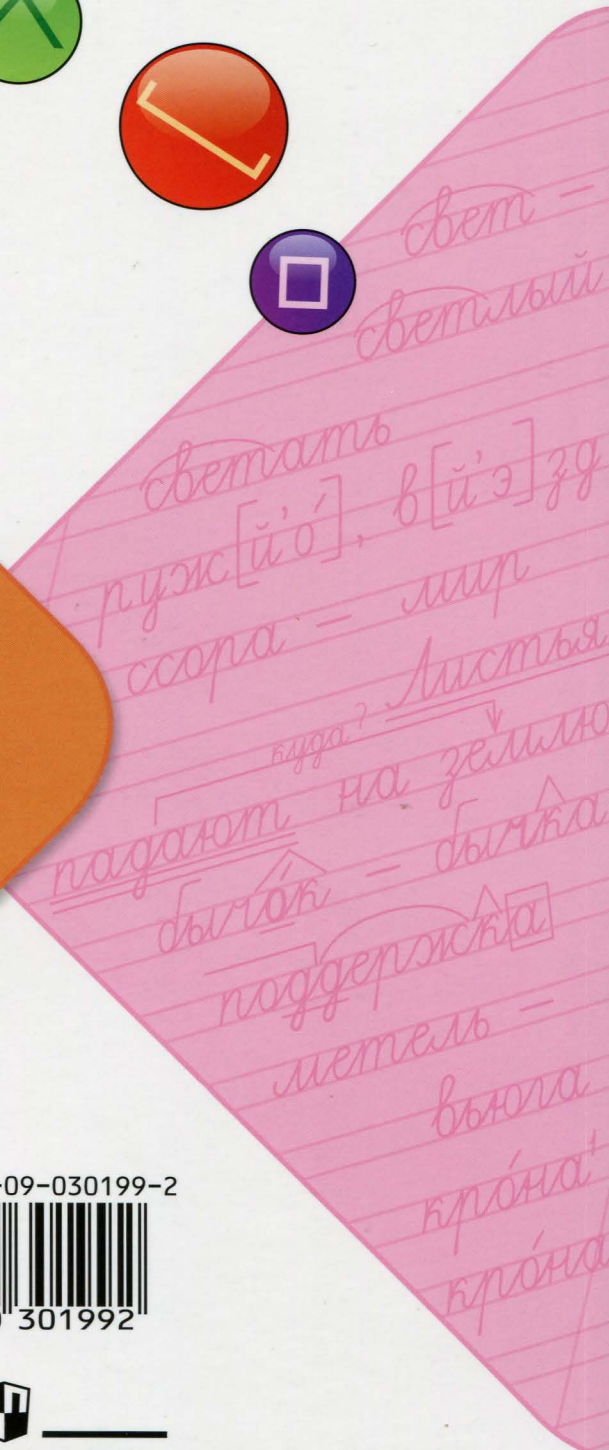 свет –
светлый
светать
руж[й’о́], в[й’э]зд
ссора – мир
Листья
куда?
падают на землю
бычо́к – бычка
поддержка
метель –
вьюга
кро́на¹
кро́на
-09-030199-2
301992